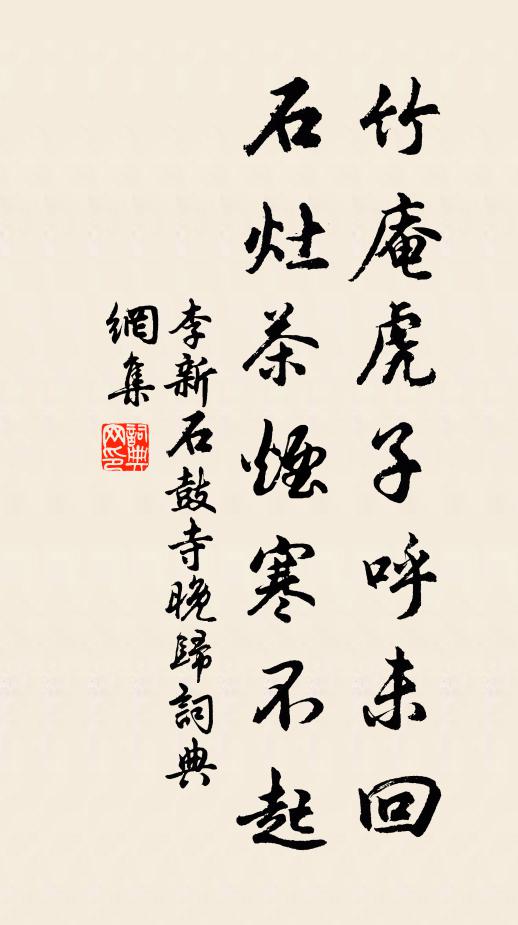 竹庵虎子呼未回
石灶茶煙寒不起
李新石鼓寺晚歸詞典
網集
詞典網印